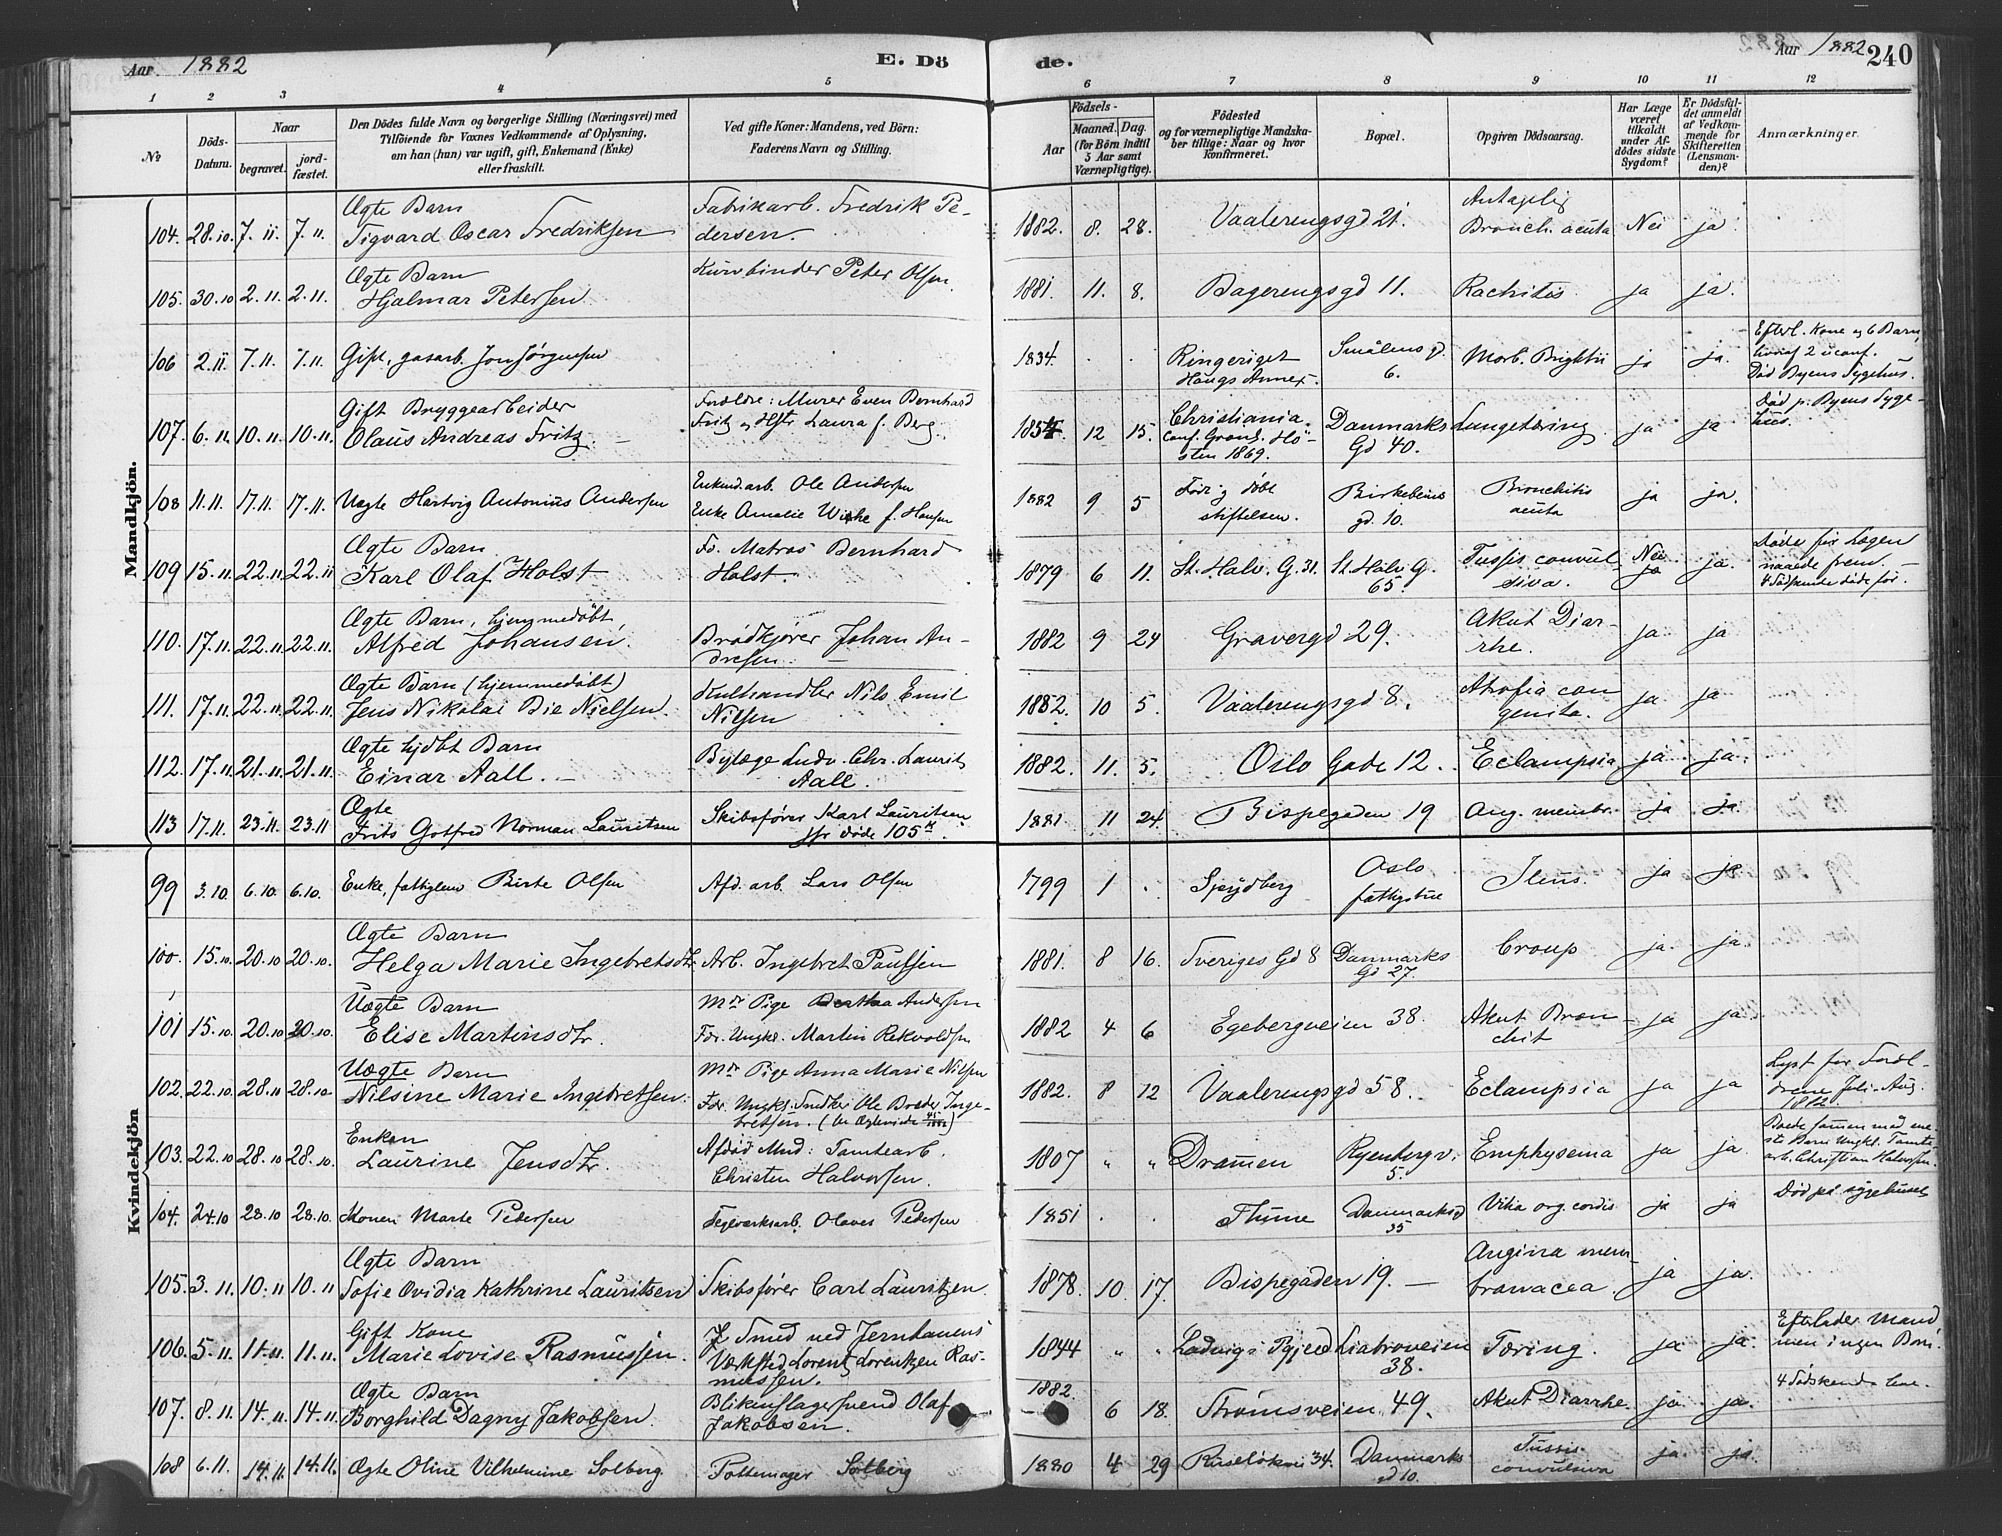 Aar 1882
E. Dö
de.
Aar 1882
240
1 2 3 4 5 6 7 8 9 10 11 12
No
Döds-
Datum.
Naar
begravet.
jord-
fæstet.
Den Dödes fulde Navn og borgerlige Stilling (Næringsvei) med
Tilföiende for Voxnes Vedkommende af Oplysning,
om han (hun) var ugift, gift, Enkemand (Enke)
eller fraskilt.
Ved gifte Koner: Mandens, ved Börn:
Faderens Navn og Stilling.
Födsels-
Aar
Maaned.
Dag.
(for Börn indtil
5 Aar samt
Værnepligtige).
Födested
og for værnepligtige Mandska-
ber tillige: Naar og hvor
konfirmeret.
Bopæl.
Opgiven Dödsaarsag.
Har Læge
været
tilkaldt
under Af-
dödes sidste
Sygdom?
Er Dödsfal-
det anmeldt
af Vedkom-
mende for
Skifteretten
(Lensman-
den)?
Anmærkninger.
Mandkjön.
104. 28.10. 7.11. 7.11. Ægte Barn
Sigvard Oscar Fredriksen
Fabrikarb. Fredrik Pe-
dersen.
1882. 8. 28. Vaalerengsgd 21. Antagelig
Bronch. acuta Nei ja
105. 30.10 2.11. 2.11. Ægte Barn
Hjalmar Petersen
Kurvbinder Peter Olsen.
1881. 11. 8. Bagerengsgd 11. Rachitis. ja ja.
106 2.11. 7.11. 7.11. Gift, gasarb. Jon Jörgensen
1834. Ringeriget
Haugs Annex.
Smålensgd.
6.
Morb. Brightii ja ja.
Efterl. Kone og 6 Barn,
hvoraf 2 uconf.
Död Byens Sygehus.
107. 6.11. 10.11. 10.11. Gift Bryggearbeider
Olaus Andreas Fritz.
Foreldre: Murer Even Bernhard
Fritz og Hstr Laura f. Berg.
1854. 12 15. Christiania.
Conf. Grönl. Hö-
sten 1869.
Danmarks
Gd 40.
Lungetæring ja ja
Död p. Byens Syge-
hus.
108 11.11. 17.11. 17.11. Uægte Hartvig Antonius Andersen
Enkmd. arb. Ole Andersen
Enke Amalie Wiche f. Hansen
1882 9 5 Föds. og döbt
stiftelsen.
Birkebeins
gd. 10.
Bronchitis
acuta
ja ja.
109 15.11. 22.11. 22.11 Ægte Barn
Karl Olaf Holst
Fd. Matros Bernhard
Holst.
1879 6 11. St. Halv. G. 31. St. Halv G.
65.
Tussis convul-
siva.
Nei
ja
ja.
Döde för Lægen
naaede frem.
4 Södskende döde för.
110. 17.11. 22.11. 22.11. Ægte Barn, hjemmedöbt
Alfred Johansen
Brödkjörer Johan An-
dresen.
1882 9 24 Gravergd 29. Akut Diar-
rhe. ja ja
111. 17.11. 22.11. 22.11. Ægte Barn (hjemmedöbt)
Jens Nikolai Bie Nielsen.
Kulhandler Nils Emil
Nilsen
1882. 10 5. Vaalerengsgd 8. Atrofia con
genita. ja ja
112. 17.11. 21.11. 21.11. Ægte hjdbt Barn
Einar Aall.
Bylæge Ludv. Chr. Laurits
Aall.
1882. 11. 5. Oslo Gade 12. Eclampsia ja ja.
113 17.11. 23.11. 23.11 Ægte
Frits Gotfred Norman Lauritsen
Skibsförer Karl Lauritsen
jfr döde 105 K.
1881. 11 24. Bispegaden 19 Ang. membr. ja ja.
Kvindekjön
99 3.10. 6.10. 6.10. Enke, fattiglem Birte Olsen
Afd. arb. Lars Olsen
1799 1 Spydberg Oslo
fattigstue
Ileus. ja ja
100. 15.10. 20.10 20.10. Ægte Barn
Helga Marie Ingebretsdtr.
Arb. Ingebret Paulsen
1881. 8 16. Sveriges Gd 8 Danmarks
Gd 27.
Croup ja. ja.
101 15.10. 20.10 20.10. Uægte Barn
Elise Martinsdtr.
Mdr Pige Berthea Andersen
Fdr. Ungk. Martin Rekvoldsen
1882 4 6 Egebergveien 38. Akut Bron-
chit ja ja.
102. 22.10. 28.11 28.10. Uægte Barn
Nilsine Marie Ingebretsen.
Mdr Pige Anna Marie Nilsen
Fdr. Ungk. Snedker Ole Inge-
bretsen.
1882. 8 12 Vaalerengsgd 58. Eclampsia ja ja
Lyst for Foræl-
drene Juli-Aug.
1882.
103. 22.10 28.10 28.10. Enken
Laurine Jensdtr.
Afdöd Mnd: Tomtearb.
Christen Halvorsen.
1807 " " Dramen Ryenbergv.
5.
Emphysema ja ja.
Boede sammen med ene-
ste Barn Ungk. Tomte-
arb. Christian Halvorsen.
104. 24.10 28.10 28.10. Konen Marte Pedersen
Teglverksarb. Olaves Pedersen
1851 Danmarksgd
35
Vitia org. cordis ja ja
Död på sygehuset
105. 3.11. 10.11. 10.11 Ægte Barn
Sofie Ovidia Kathrine Lauritsen
Skibsförer Carl Lauritzen.
1878. 10. 17. Bispegaden 19. Angina mem-
branacea. ja ja.
106. 5.11. 11.11. 11.11. Gift Kone
Marie Lovise Rasmussen.
Smed ved Jernbanens
Værksted Lorentz Lorentzen Ras-
mussen.
1844 " " Liabroveien
38.
Tæring. ja ja.
Efterlader Mand
men ingen Börn.
107. 8.11. 14.11. 14.11. Ægte Barn
Borghild Dagny Jakobsen.
Blikenslagersvend Olaf
Jakobsen.
1882. 6 18. Strömsveien 49. Akut Diarrhe. ja ja.
4 Södskende lever.
108 6.11. 14.11. 14.11. Ægte Oline Vilhelmine Solberg.
Pottemager Solberg
1880 4 29 Ruselökvei 34. Danmarks
gd 10.
Tussis
convulsiva
ja. ja.